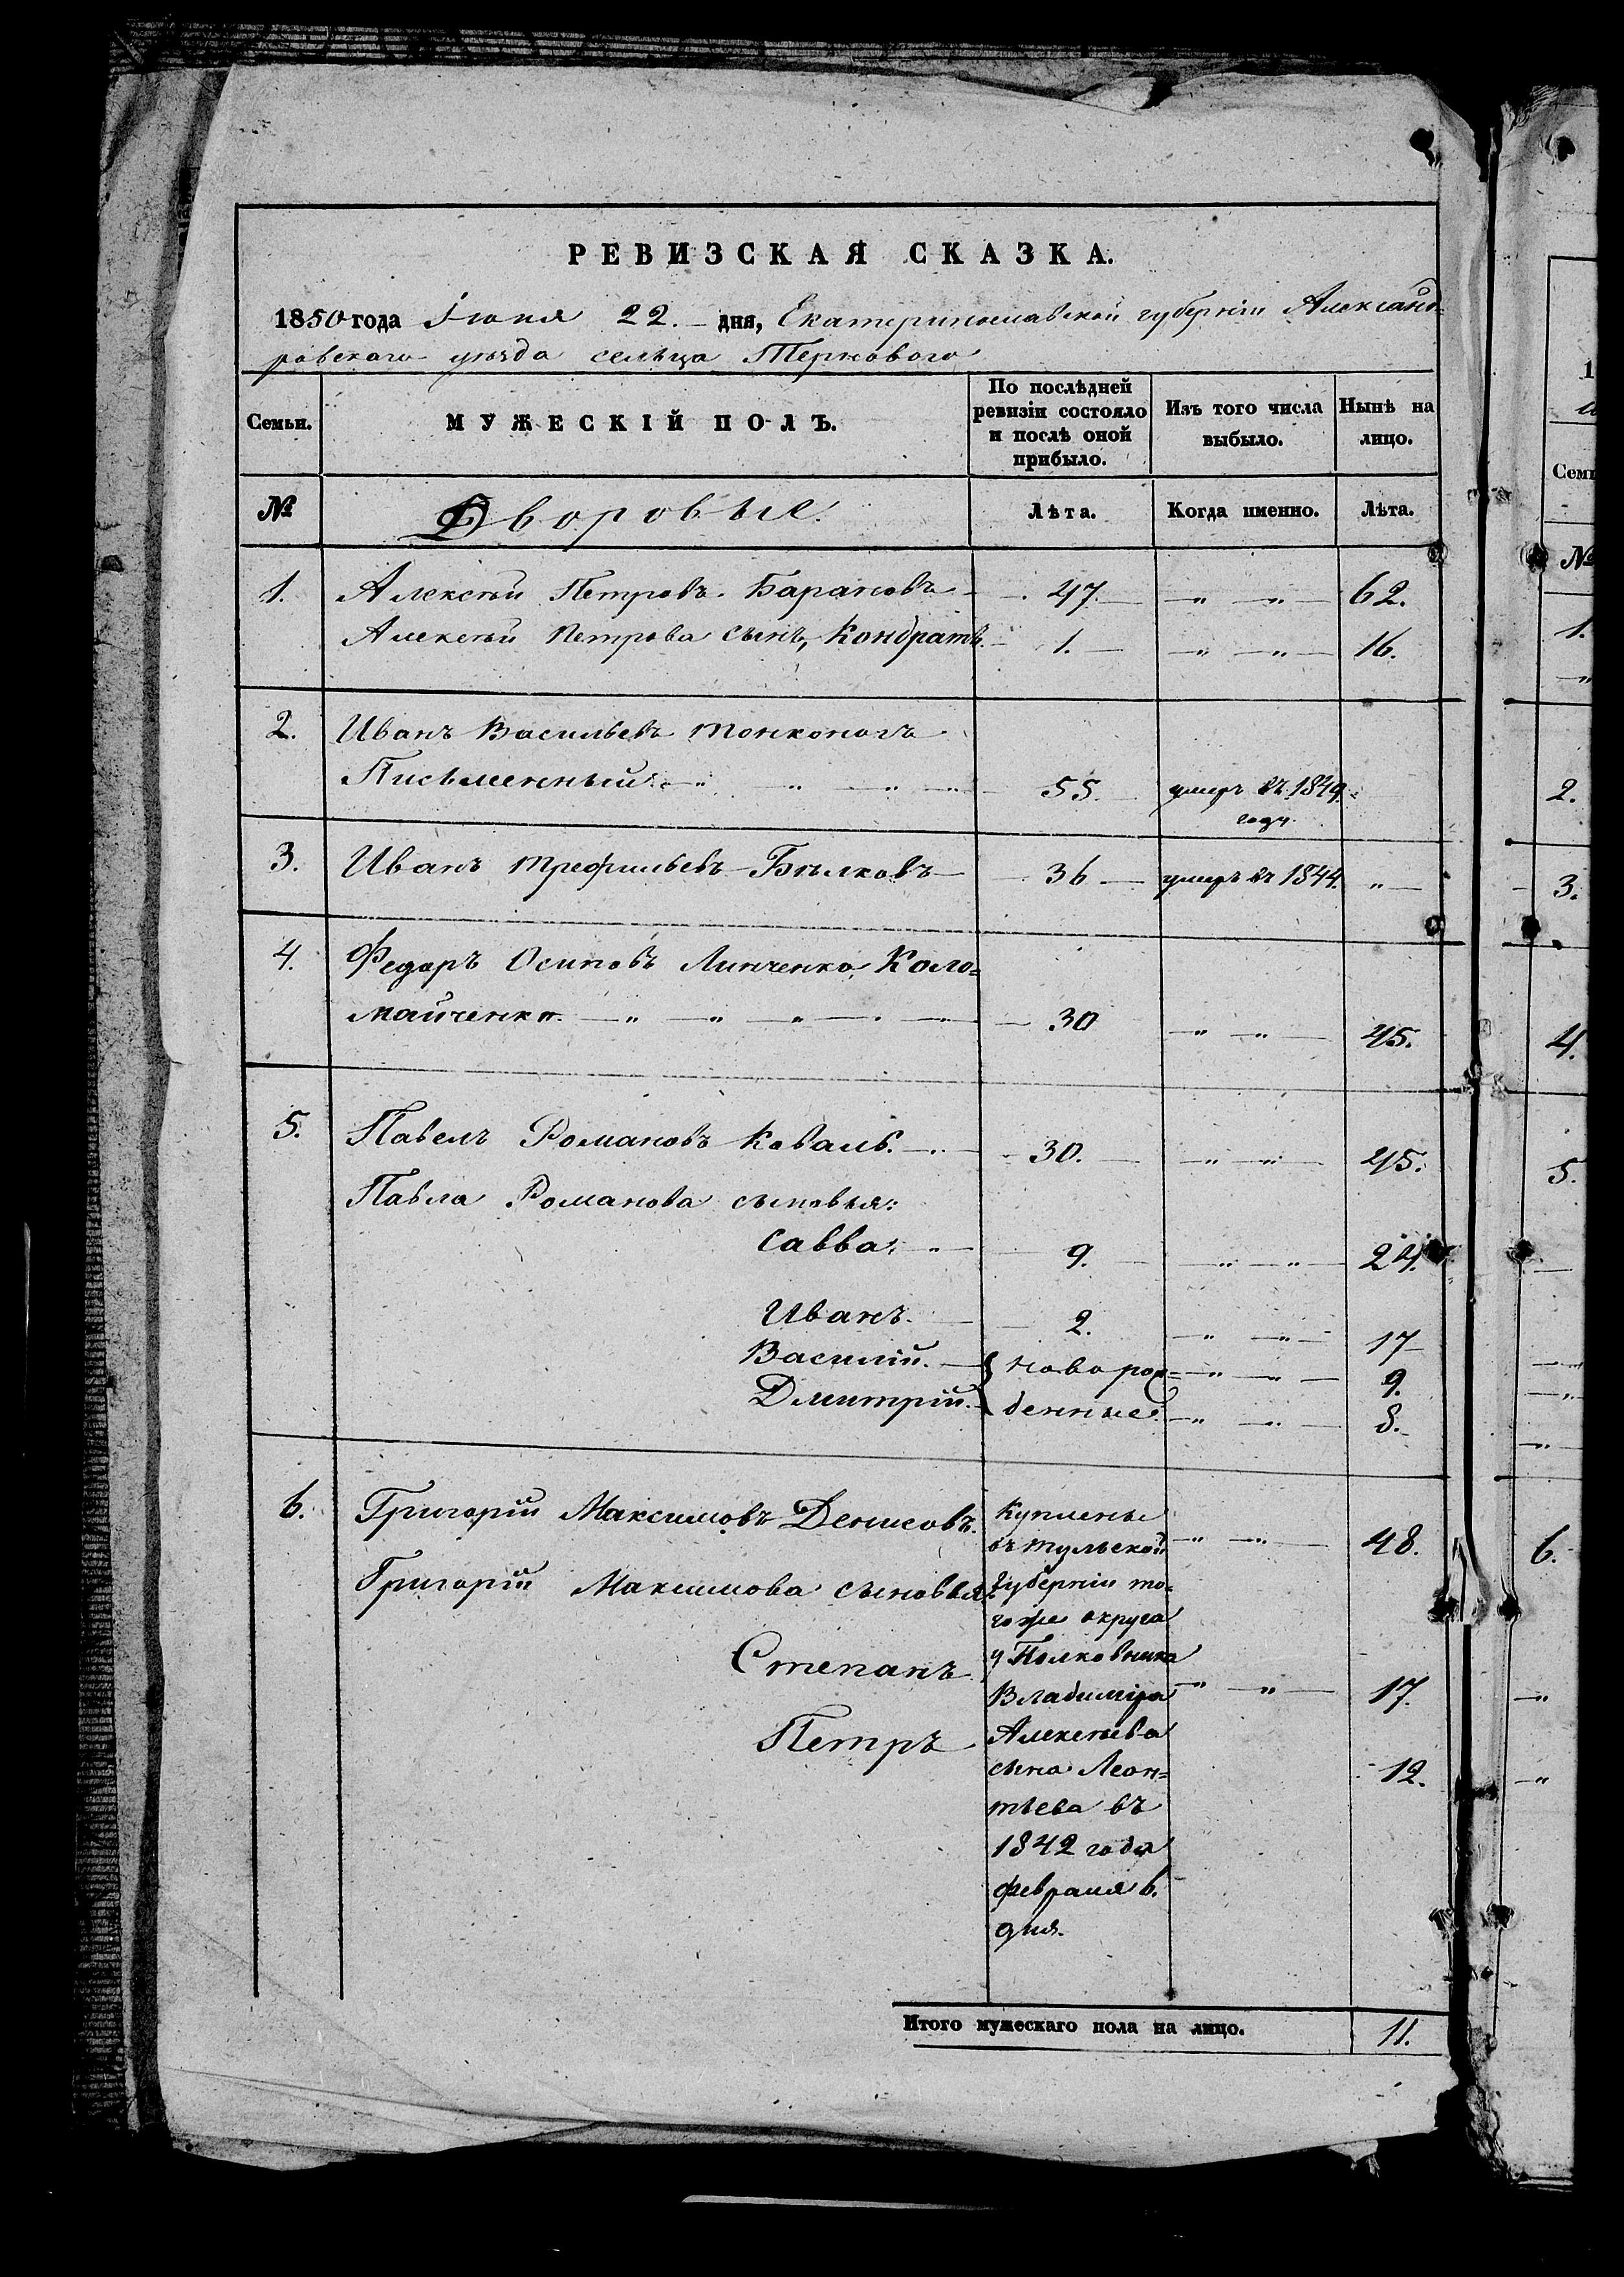 РЕВИЗСКАЯ СКАЗКА.
1850 года Іюня 22. дня, Екатеринославской губерніи Александ-
ровскаго уѣзда сельца Терноваго
Семьи. МУЖЕСКІЙ ПОЛЪ. По послѣдней ревизіи состояло и послѣ оной прибыло. Изъ того числа выбыло. Нынѣ на лицо.
№ Дворовые. Лѣта. Когда именно. Лѣта.
1. Алексѣй Петровъ Барановъ 47. — „ — „ — 62.
Алексѣй Петрова сынъ, Кондратъ. 1. — „ — „ — 16.
2. Иванъ Васильевъ Тонконогъ
Письменный. 55. умеръ въ 1849.
году.
3. Иванъ Трефильевъ Бѣлковъ 36 умеръ въ 1844. „
4. Федоръ Осиповъ Линченко Коло=
майченко. 30 — „ — „ — 45.
5. Павелъ Романовъ Коваль. 30. — „ — „ — 45.
Павла Романова сыновья:
Савва. 9. — „ — „ — 24.
Иванъ. 2. — „ — „ — 17
Василій. { новорож= — „ — „ — 9.
Дмитрій. { денные — „ — „ — 8.
6. Григорій Максимовъ Денисовъ. Куплены
въ Тульской — „ — „ — 48.
Григорій Максимова сыновья: Губерніи то=
гоже округа
Степанъ у Полковника
Владиміра — „ — „ — 17.
Петръ Алексѣева
сына Леон= 12.
тьева въ
1842 года
февраля 6.
дня.
Итого мужескаго пола на лицо. 11.
1
Семь
№
1.
2.
3.
4.
5.
6.